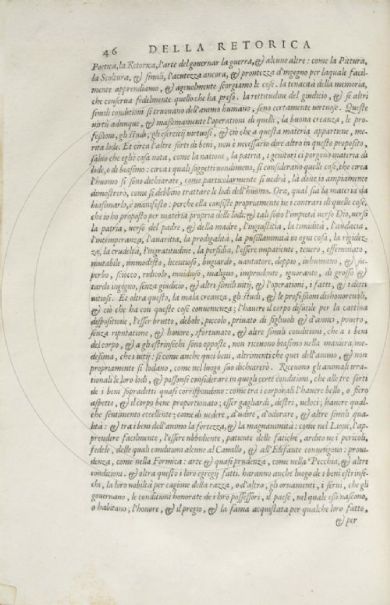 46 DELLA RETORICA
Poetica, la Retorica, l'arte del governar la guerra, & alcune altre: come la Pittura,
la Scultura, & simili, l'acutezza ancora, & prontezza d'ingegno per laquale facil-
mente apprendiamo, & agevolmente scorgiamo le cose. la tenacità della memoria,
che conserva fidelmente quello che ha preso. la rettitudine del giudicio, & se altri
simili condizioni si truovano dell'animo humano, sono certamente virtuose. Queste
virtù adunque, & massimamente l'operationi di quelle, la buona creanza, le pro-
fessioni, gli studi, gli essercitij virtuosi, & ciò che a questa materia appartiene, me-
rita lode. Et circa l'altre sorti di beni, non è necessario dire altro in questo proposito,
salvo che egli è cosa nota, come la natione, la patria, i genitori ci porgono materia di
lode, o di biasimo: circa i quali soggetti nondimeno, si considerano quelle cose, che circa
l'huomo si sono dichiarate, come particolarmente si vedrà, là dove io ampiamente
dimostrerò, come si debbono trattare le lodi dell'huomo. Ora, qual sia la materia da
biasimarlo, è manifesto: perche ella consiste propriamente ne i contrari di quelle cose,
che io ho proposto per materia propria delle lodi. & tali sono l'impietà verso Dio, versò
la patria, verso del padre, & della madre, l'ingiustitia, la timidità, l'audacia,
l'intemperanza, l'avaritia, la prodigalità, la pusillanimità in ogni cosa, la rigidez-
za, la crudeltà, l'ingratitudine, la perfidia, l'essere impatiente, tenero, effeminato,
mutabile, immodesto, licentioso, bugiardo, vantatore, doppio, inhumano, & su-
perbo, sciocco, ridicolo, invidioso, maligno, imprudente, ignorante, di grosso &
tardo ingegno, senza giudicio, & altri simili vitij, & l'operationi, i fatti, & i detti
vitiosi. Et oltra questo, la mala creanza, gli studi, & le professioni dishonorevoli,
& ciò che ha con queste cose convenienza; l'havere il corpo difficile per la cattiva
dispositione, l'esser brutto, debole, piccolo, privato di figliuoli & d'amici, povero,
senza riputatione, & honore, sfortunato, & altre simili conditioni, che a i beni
del corpo, & a gli estrinsechi sono opposte, non ricevono biasimo nella maniera me-
desima, che i vitij: si come anche quei beni, altrimenti che quei dell'animo, & non
propriamente si lodano, come nel luogo suo dichiarerò. Ricevono gli animali irra-
tionali le loro lodi, & possonsi considerare in quegli certe conditioni, che alle tre sorti
de i beni sopradetti quasi corrispondono: come tra i corporali l'havere bello, o fiero
aspetto, & il corpo bene proportionato; esser gagliardi, destri, veloci; havere qual-
che sentimento eccellente: come di vedere, d'udire, d'odorare, & altre simili qua-
lità: & tra i beni dell'animo la fortezza, & la magnanimità: come nel Lione, l'ap-
prendere facilmente, l'essere ubbidiente, patiente delle fatiche, ardito nei pericoli,
fedele, delle quali conditioni alcune al Cavallo, & all'Elefante convengono: provi-
denza, come nella Formica: arte & quasi prudenza, come nella Pecchia, & altre
conditioni. & oltra questo i loro egregij fatti. haranno anche luogo de i beni estrinse-
chi, la loro nobiltà per cagione della razza, o d'altro; gli ornamenti, i servi, che gli
governano, le conditioni honorate de i loro possessori, il paese, nel quale essi nascono,
o habitano, l'honore, & il pregio, & la fama acquistata per qualche loro fatto,
& per